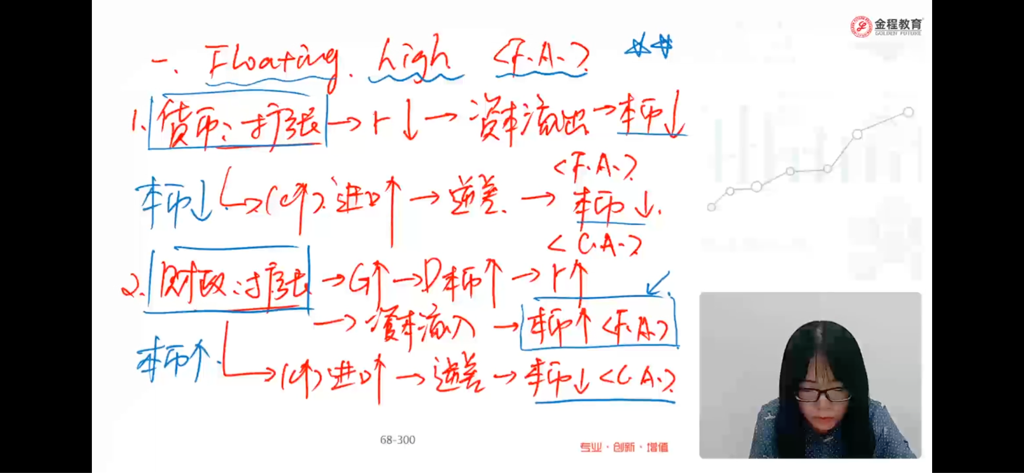 金程教育
GOLDEN FUTURE
一. Floating. high <F.A.>
1. 货币:扩张 → r↓ → 资本流出 → 本币↓
<F.A.>
本币↓ → (C↑) 进口↑ → 逆差. → 本币↓.
<C.A.>
2. 财政:扩张 → G↑ → D本币↑ → r↑
→ 资本流入 → 本币↑ <F.A.>
本币↑. → (C↑) 进口↑ → 逆差 → 本币↓ <C.A.>
68-300
专业·创新·增值